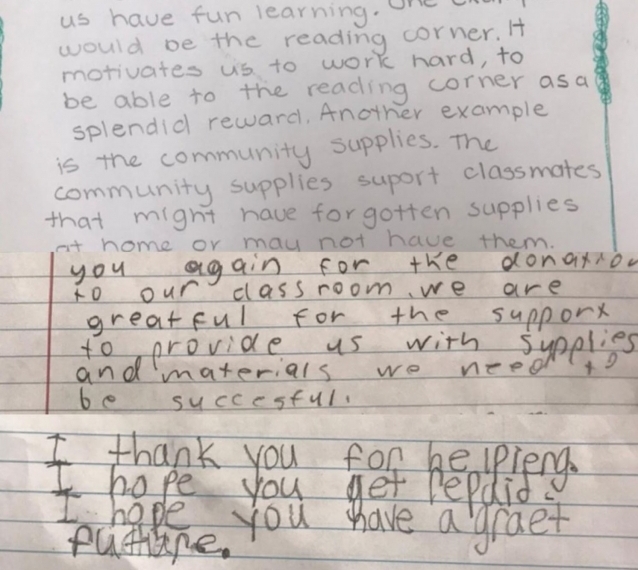 us have fun learning. One
would be the reading corner. It
motivates us to work hard, to
be able to the reading corner as a
splendid reward. Another example
is the community supplies. The
community supplies suport classmates
that might have forgotten supplies
at home or may not have them.
you again for the donation
to our classroom. we are
greatful for the support
to provide us with supplies
and materials we need to
be succesful.
I thank you for helpieng.
I hope you get repaid.
I hope you have a graet
futhure.